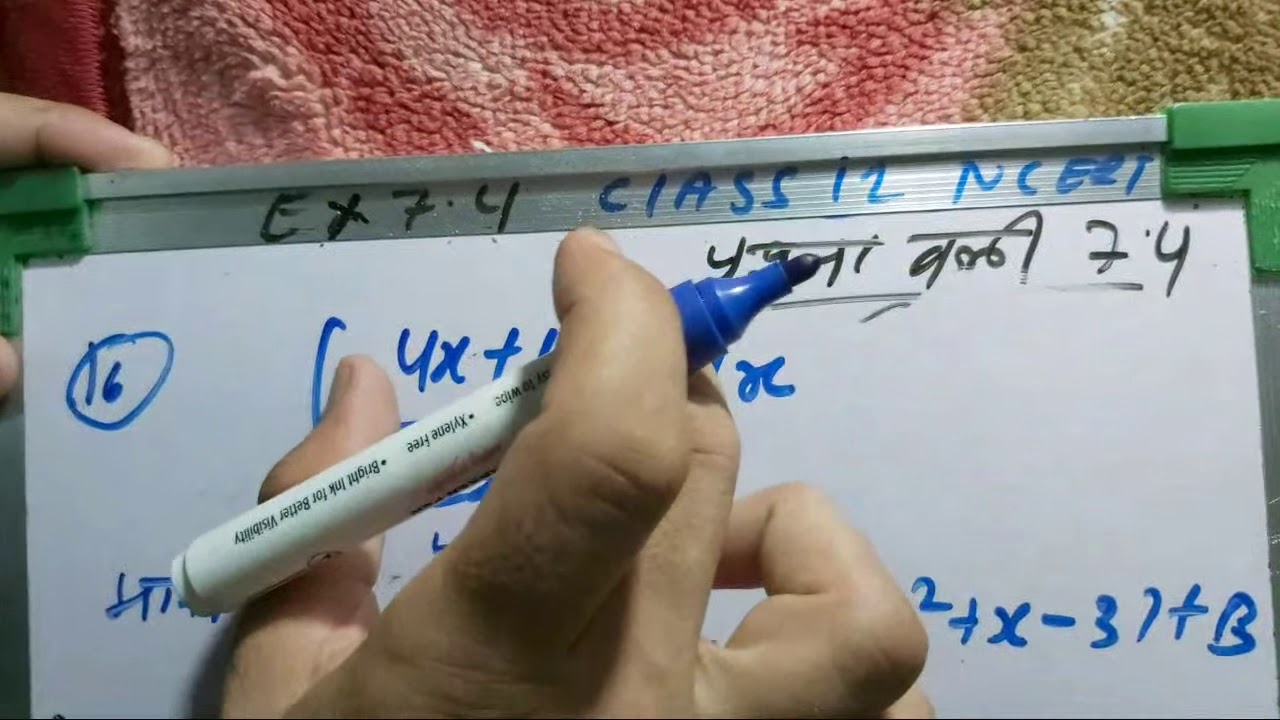 Ex 7.4 CLASS 12 NCERT
वली 7.4
16 4x + x
2 + x - 3) + B
• Bright Ink for Better Visibility • Xylene Free Easy to wipe